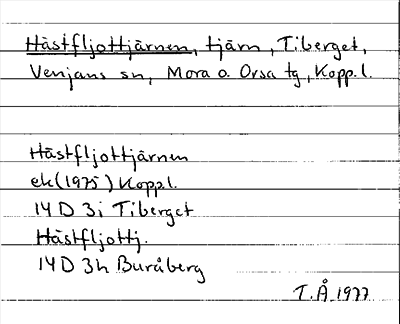 Hästfljottjärnen, tjärn, Tiberget,
Venjans sn, Mora o. Orsa tg, Kopp. l.
Hästfljottjärnen
ek (1975) Kopp. l.
14 D 3i Tiberget
Hästfljottj.
14 D 3h Buråberg
T. Å. 1977